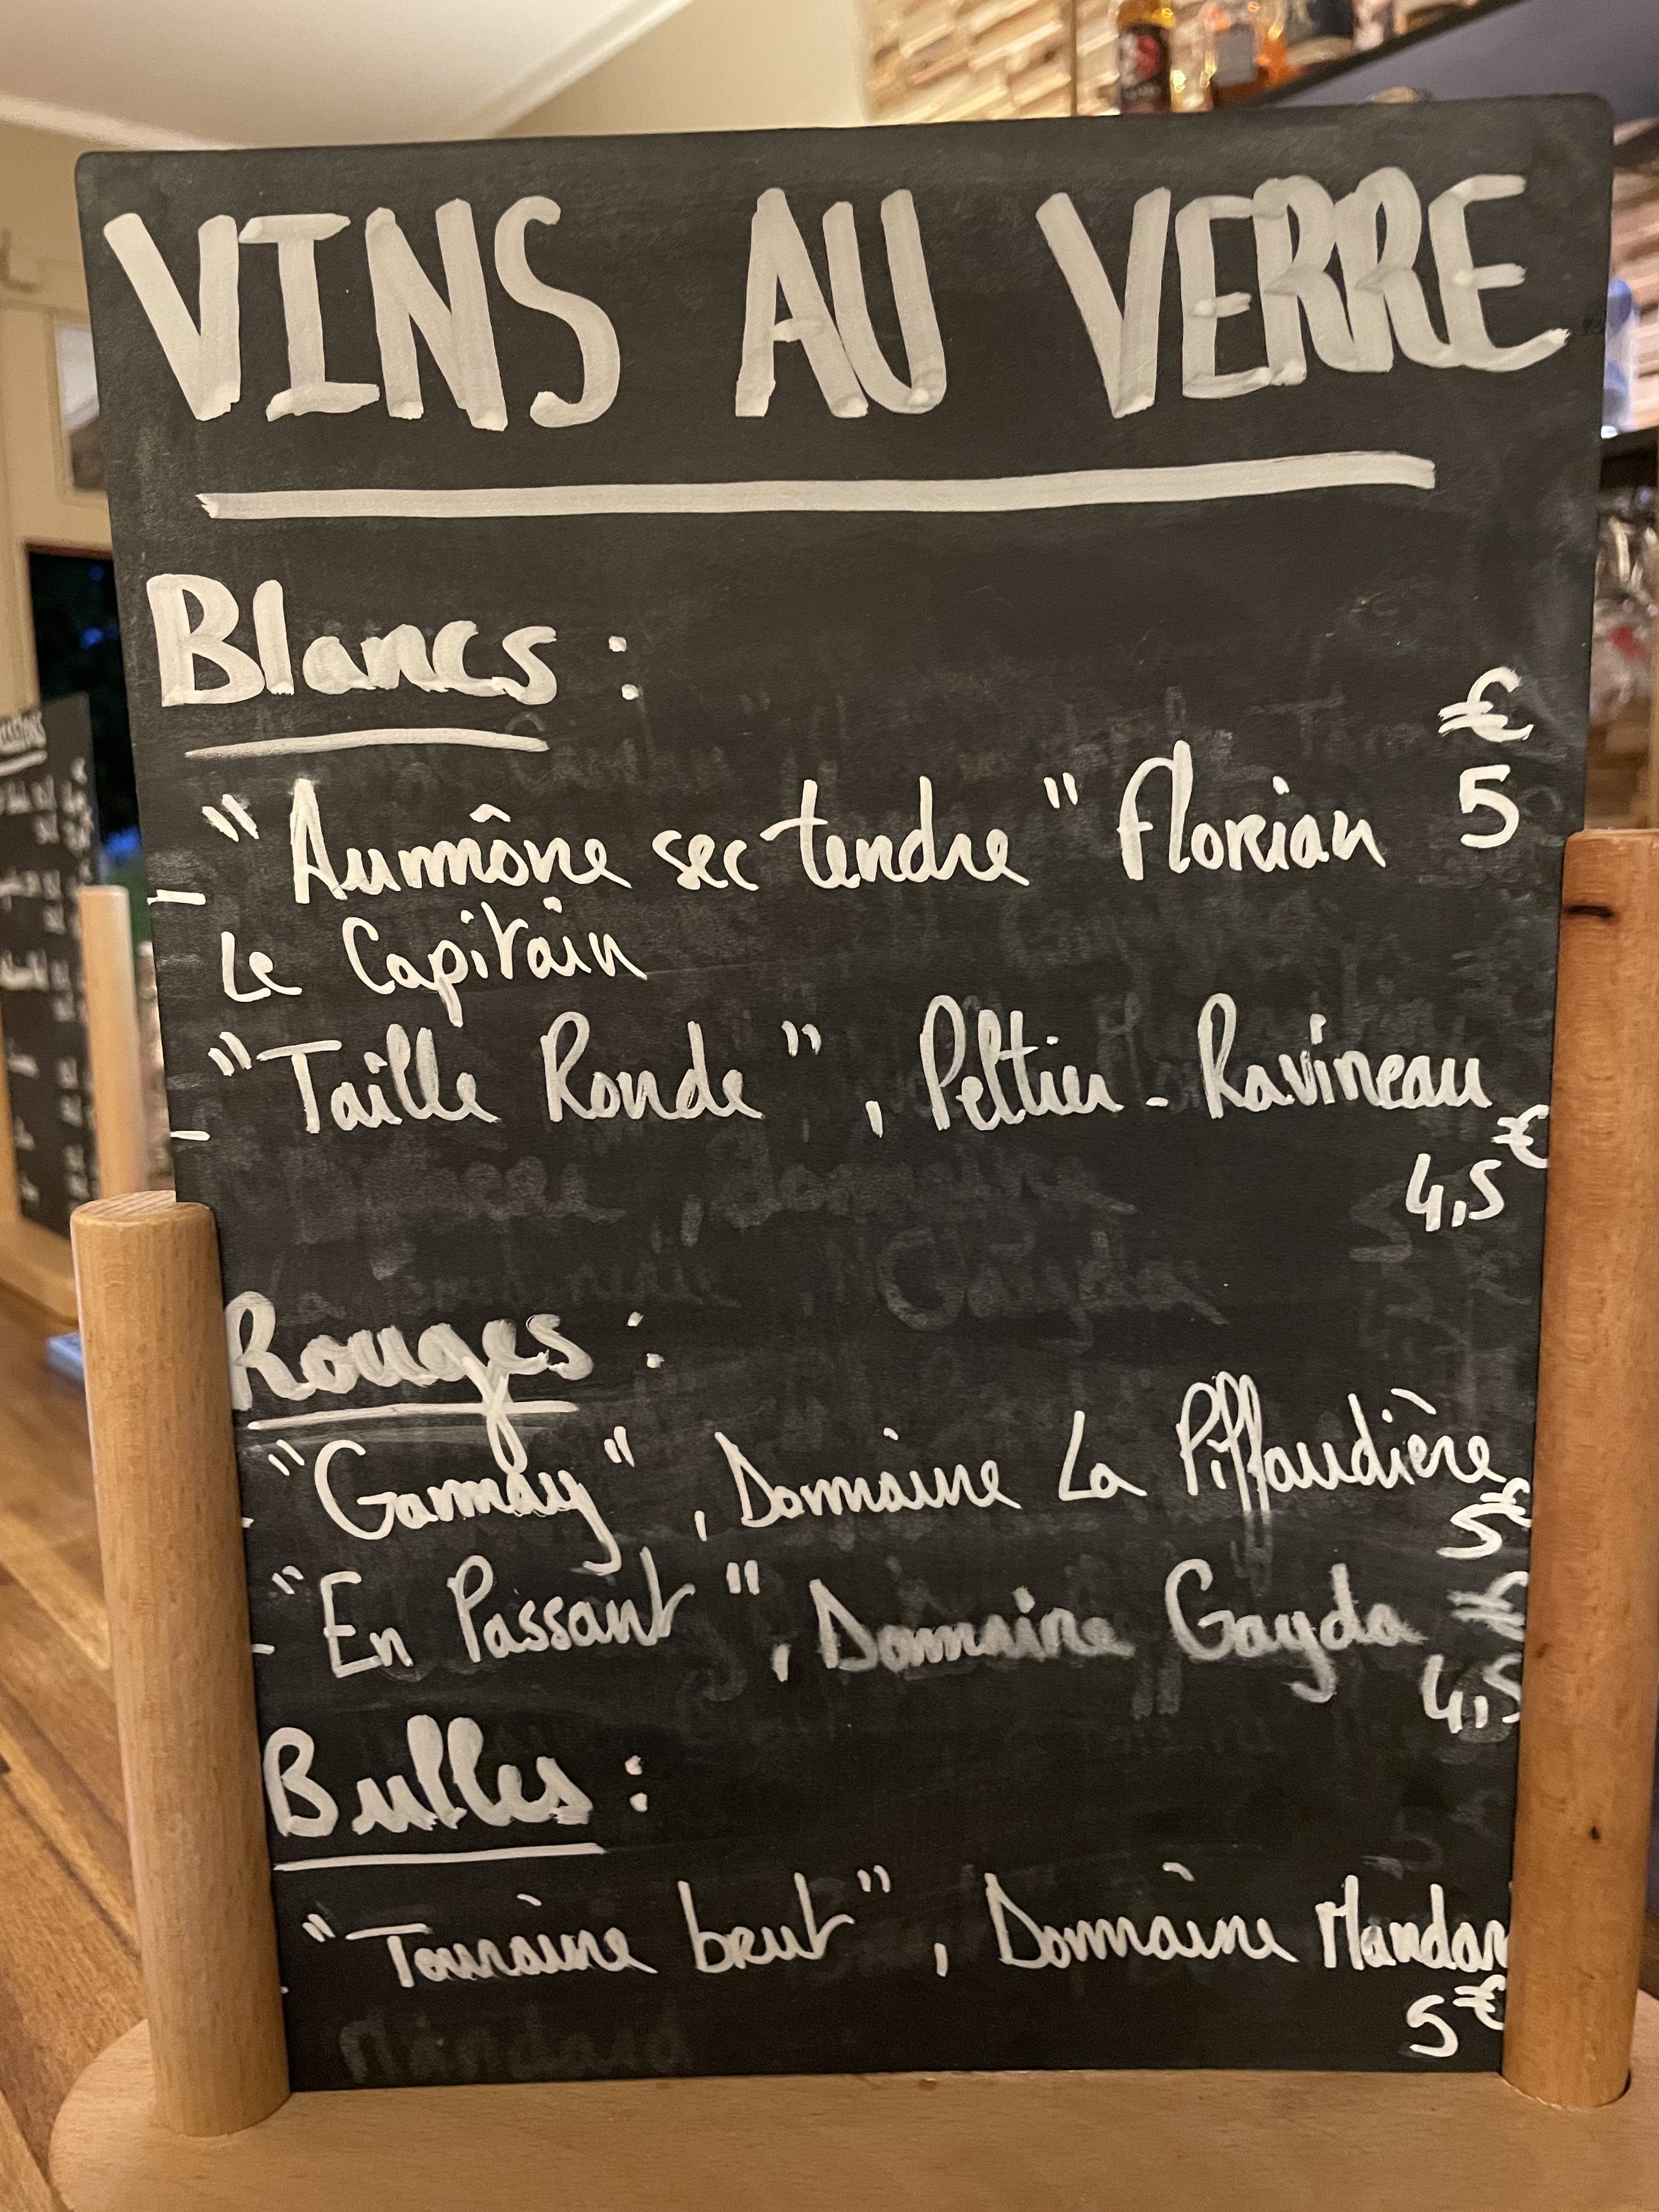 VINS AU VERRE
Blancs :
€
- "Aumône sec tendre" Florian 5
Le Capitain
- "Taille Ronde", Peltier-Ravineau
€
4,5
Rouges :
- "Gamay", Domaine La Piffaudière
5€
- "En Passant", Domaine Gayda €
4,5
Bulles :
- "Touraine brut", Domaine Mandar
5€
Mandard